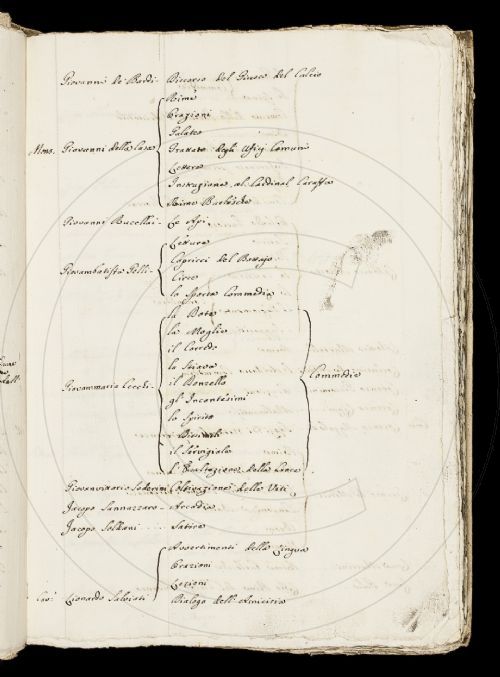 Giovanni de Bardi - Discorso del Giuoco del Calcio
Rime
Orazioni
Galateo
Mons. Giovanni della Casa Trattato degli Ufizj Comuni
Lettere
Instruzione al Cardinal Caraffa
Rime Burlesche
Giovanni Rucellai - Le Api
Letture
Giovambatista Gelli - Capricci del Bottajo
Circe
la Sporta Commedia
la Dote
la Moglie
il Corredo
la Stiava
Giovanmaria Cecchi - il Donzello Commedie
gl' Incantesimi
lo Spirito
i Dissimili
il Servigiale
L'Esaltazione della Croce
Giovanvittorio Soderini Coltivazione delle Viti
Jacopo Sannazzaro - Arcadia
Jacopo Soldani .... Satire
Avvertimenti della Lingua
Orazioni
Lezioni
Cav. Lionardo Salviati Dialogo dell' Amicizia